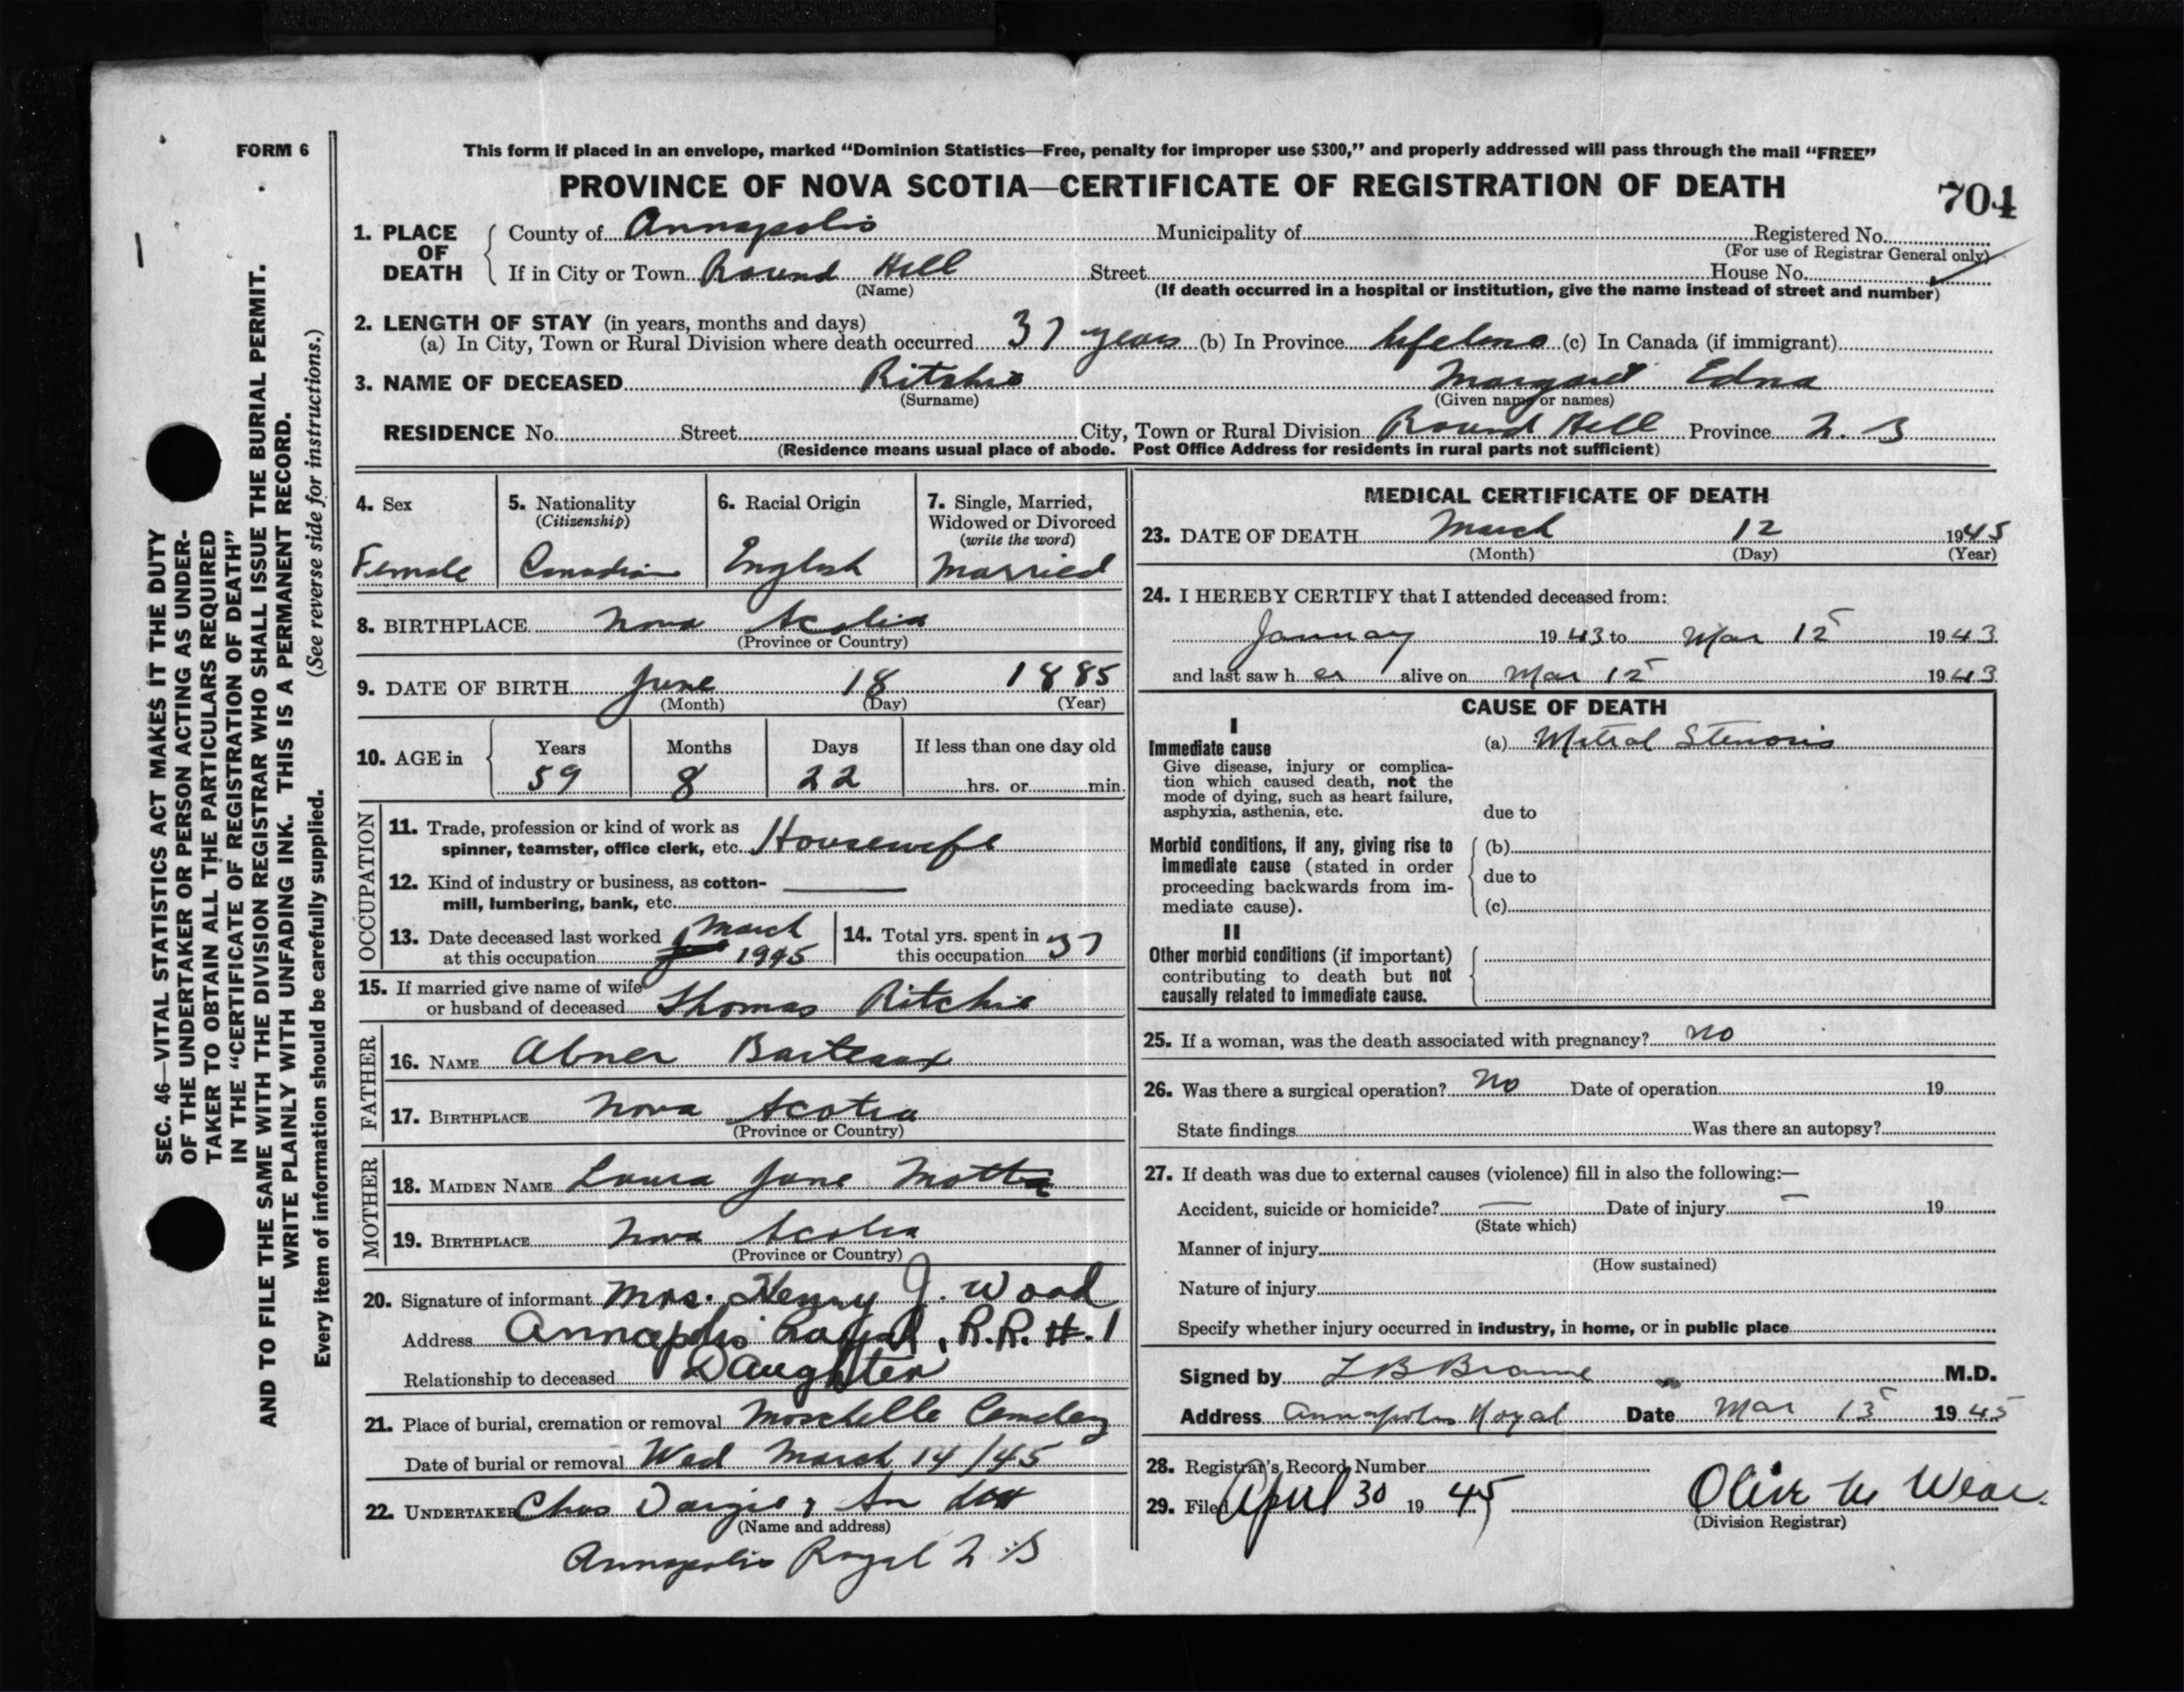 FORM 6
This form if placed in an envelope, marked “Dominion Statistics—Free, penalty for improper use $300,” and properly addressed will pass through the mail “FREE”
PROVINCE OF NOVA SCOTIA—CERTIFICATE OF REGISTRATION OF DEATH
704
SEC. 46—VITAL STATISTICS ACT MAKES IT THE DUTY
OF THE UNDERTAKER OR PERSON ACTING AS UNDER-
TAKER TO OBTAIN ALL THE PARTICULARS REQUIRED
IN THE “CERTIFICATE OF REGISTRATION OF DEATH”
AND TO FILE THE SAME WITH THE DIVISION REGISTRAR WHO SHALL ISSUE THE BURIAL PERMIT.
WRITE PLAINLY WITH UNFADING INK. THIS IS A PERMANENT RECORD.
Every item of information should be carefully supplied. (See reverse side for instructions.)
1. PLACE OF DEATH
County of Annapolis Municipality of Registered No.
(For use of Registrar General only)
If in City or Town Round Hill Street House No.
(Name) (If death occurred in a hospital or institution, give the name instead of street and number)
2. LENGTH OF STAY (in years, months and days)
(a) In City, Town or Rural Division where death occurred 37 years (b) In Province lifelong (c) In Canada (if immigrant)
3. NAME OF DECEASED Ritchie Margaret Edna
(Surname) (Given name or names)
RESIDENCE No. Street City, Town or Rural Division Round Hill Province N. S
(Residence means usual place of abode. Post Office Address for residents in rural parts not sufficient)
4. Sex
Female
5. Nationality
(Citizenship)
Canadian
6. Racial Origin
English
7. Single, Married,
Widowed or Divorced
(write the word)
Married
8. BIRTHPLACE Nova Scotia
(Province or Country)
9. DATE OF BIRTH June 18 1885
(Month) (Day) (Year)
10. AGE in Years Months Days If less than one day old
59 8 22 hrs. or min.
OCCUPATION
11. Trade, profession or kind of work as
spinner, teamster, office clerk, etc. Housewife
12. Kind of industry or business, as cotton-
mill, lumbering, bank, etc.
13. Date deceased last worked March
at this occupation 1945
14. Total yrs. spent in
this occupation 37
15. If married give name of wife
or husband of deceased Thomas Ritchie
FATHER
16. NAME Abner Barteaux
17. BIRTHPLACE Nova Scotia
(Province or Country)
MOTHER
18. MAIDEN NAME Laura Jane
19. BIRTHPLACE Nova Scotia
(Province or Country)
20. Signature of informant Mrs. Henry J. Wood
Address Annapolis Royal, R.R.#.1
Relationship to deceased Daughter
21. Place of burial, cremation or removal Moschelle Cemetery
Date of burial or removal Wed March 14/45
22. UNDERTAKER Chas Dargie & Son Ltd
(Name and address)
Annapolis Royal N.S
MEDICAL CERTIFICATE OF DEATH
23. DATE OF DEATH March 12 1945
(Month) (Day) (Year)
24. I HEREBY CERTIFY that I attended deceased from:
January 1943 to Mar 12 1943
and last saw her alive on Mar 12 1943
CAUSE OF DEATH
I
Immediate cause (a) Mitral Stenosis
Give disease, injury or complica-
tion which caused death, not the
mode of dying, such as heart failure,
asphyxia, asthenia, etc. due to
Morbid conditions, if any, giving rise to (b)
immediate cause (stated in order
proceeding backwards from im- due to
mediate cause). (c)
II
Other morbid conditions (if important)
contributing to death but not
causally related to immediate cause.
25. If a woman, was the death associated with pregnancy? no
26. Was there a surgical operation? no Date of operation 19
State findings Was there an autopsy?
27. If death was due to external causes (violence) fill in also the following:—
Accident, suicide or homicide? — Date of injury — 19
(State which)
Manner of injury
(How sustained)
Nature of injury
Specify whether injury occurred in industry, in home, or in public place
Signed by L B Braine M.D.
Address Annapolis Royal Date Mar 13 1945
28. Registrar's Record Number
29. Filed April 30 1945 Olive M Wear
(Division Registrar)